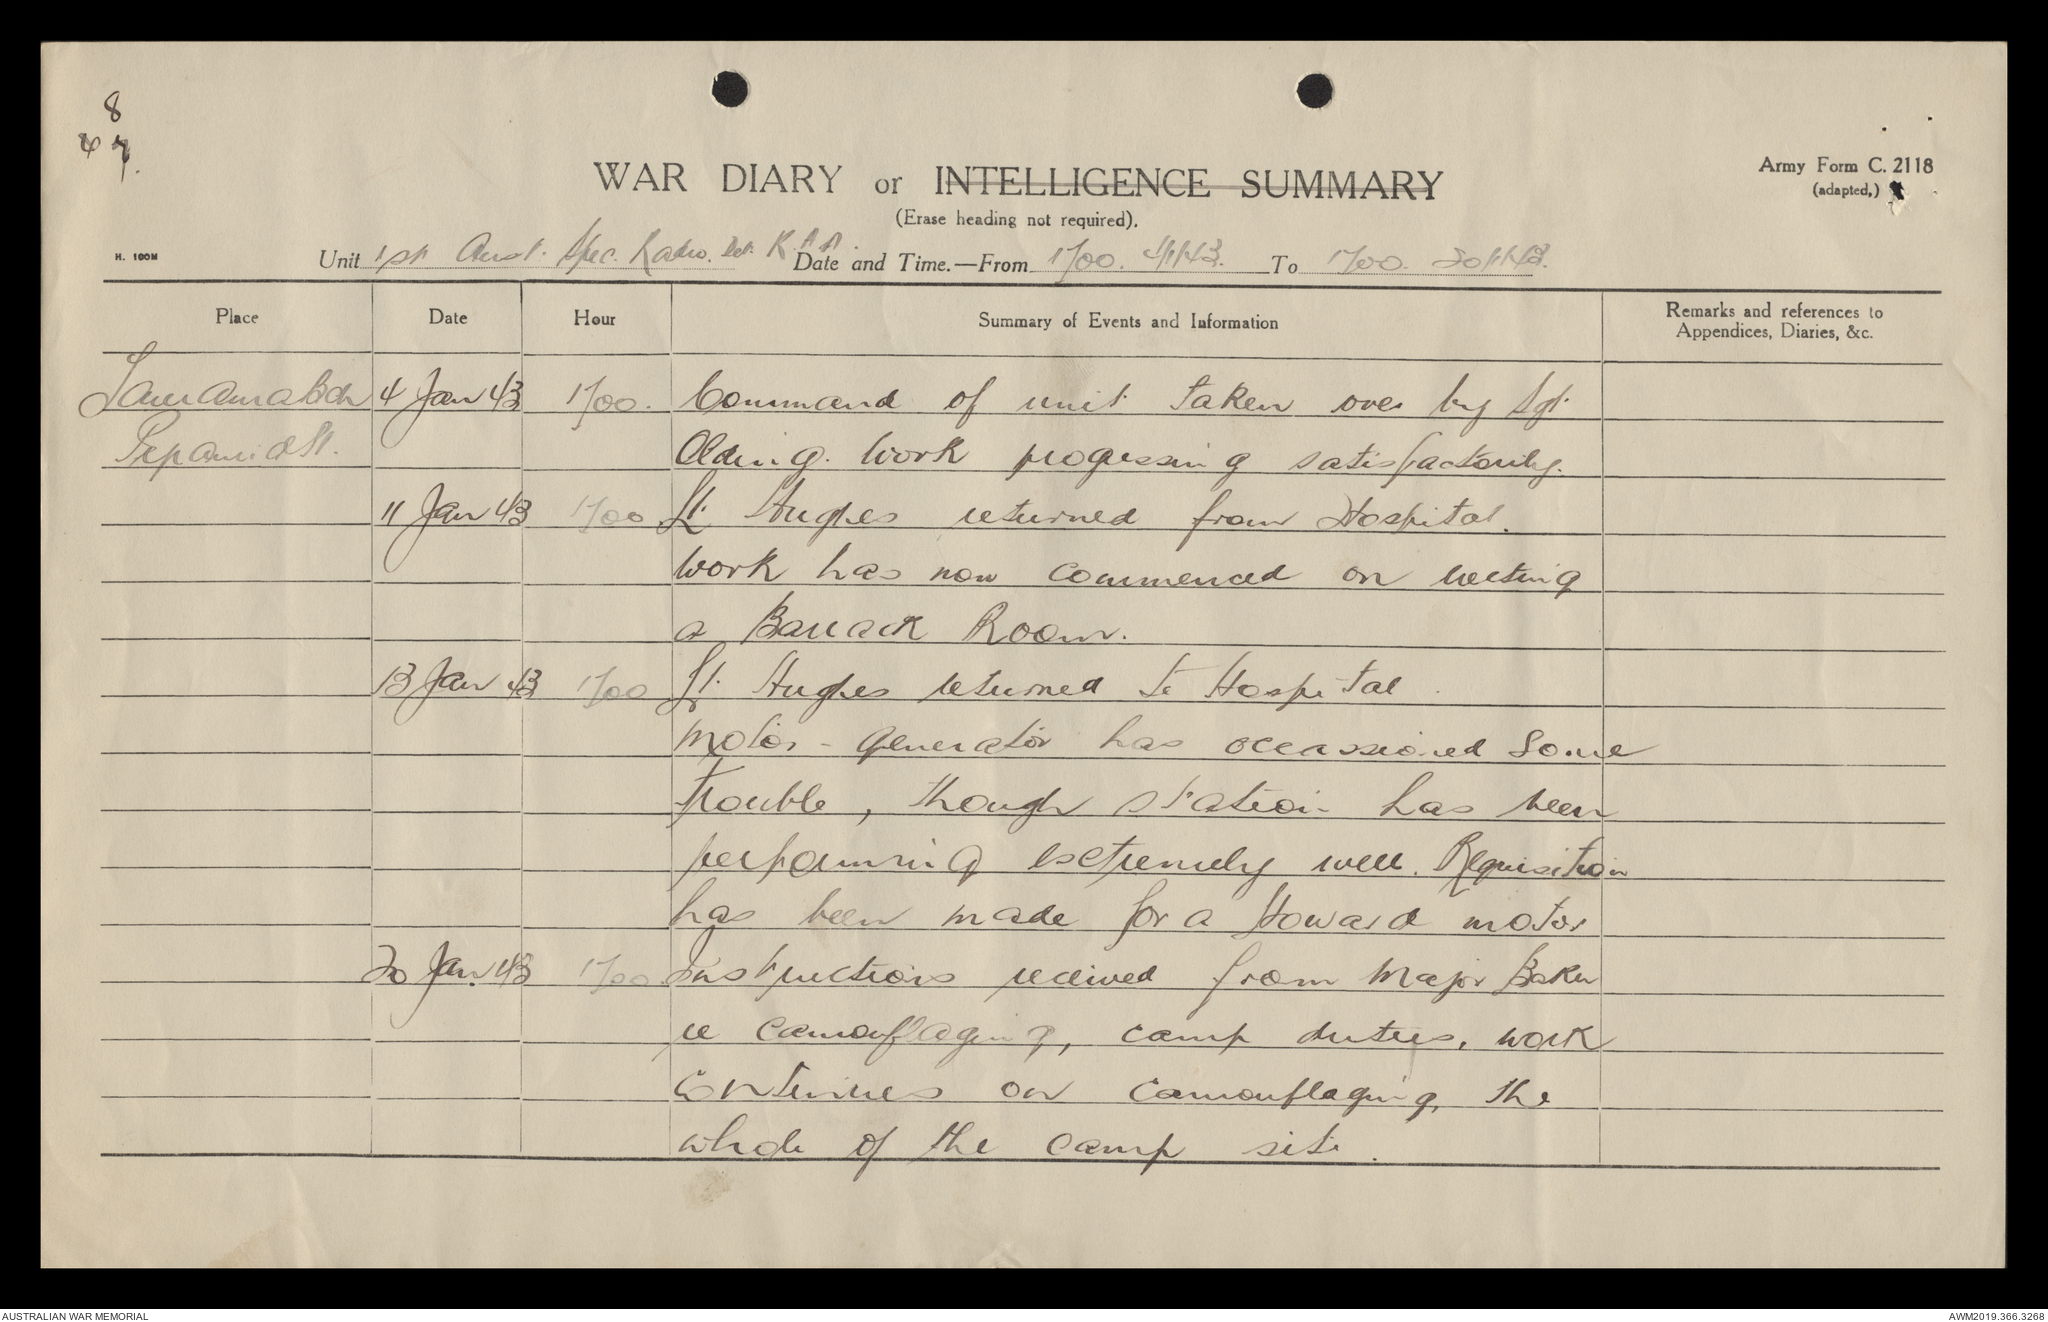 8
7.
WAR DIARY or INTELLIGENCE SUMMARY
Army Form C. 2118
(adapted.)
(Erase heading not required).
H. 100M
Unit 1st Aust. Spec. Radio. Det. R.A.A. Date and Time.—From 1700. 4/1/43. To 1700. 20/1/43.
Place Date Hour Summary of Events and Information Remarks and references to
Appendices, Diaries, &c.
4 Jan 43 1700. Command of unit taken over by Sgt.
Olding. Work progressing satisfactorily.
11 Jan 43 1700 Lt. Hughes returned from Hospital.
Work has now commenced on erecting
a Barrack Room.
13 Jan 43 1700 Lt. Hughes returned to Hospital
Motor-generator has occassioned some
trouble, though station has been
performing extremely well. Requisition
has been made for a Howard motor
20 Jan. 43 1700. Instructions received from Major Baker
re camouflaging, camp duties, work
continues on camouflaging, the
whole of the camp site.
AUSTRALIAN WAR MEMORIAL
AWM2019.366.3268